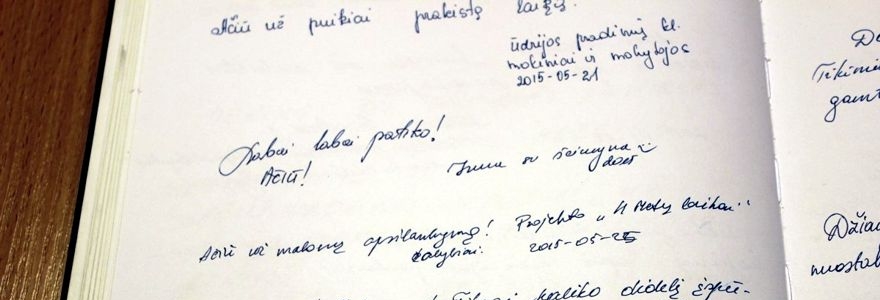 Ačiū už puikiai praleistą laiką.
Ūdrijos pradinių kl.
mokiniai ir mokytojos
2015-05-21
Labai labai patiko!
Ačiū!
su šeimyna
Ačiū už malonų apsilankymą! Projekto „4 Metų laikai“
dalyviai. 2015-05-25
paliko didelį įspū-
Tikime
Džiau
nuostab